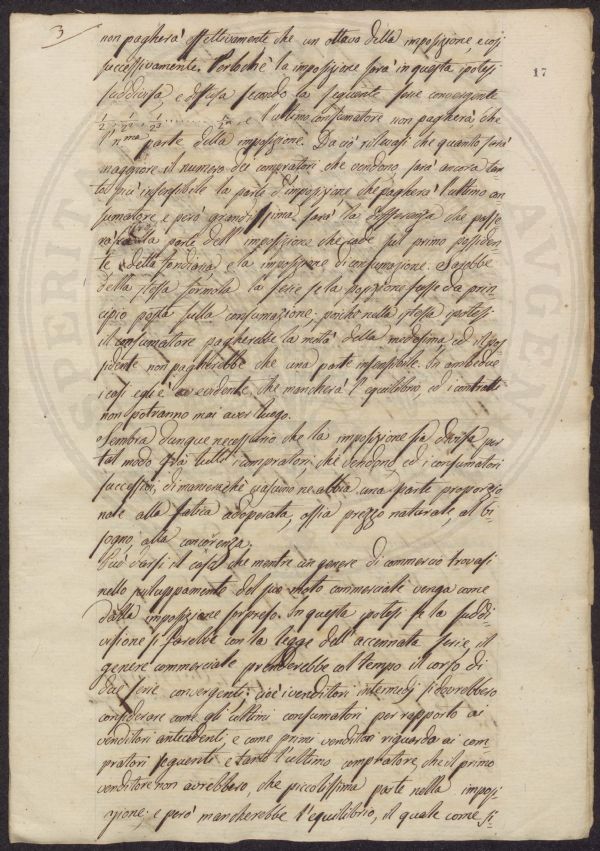 3
17
non pagherà effettivamente che un ottavo della imposizione, e così
successivamente. Perlochè la imposizione sarà in questa ipotesi
suddivisa, e diffusa secondo la seguente serie convergente
1/2, 1/2², 1/2³ ........ 1/2ⁿ, e l'ultimo consumatore non pagherà, che
l'n.ma parte della imposizione. Da ciò rilevasi che quanto sarà
maggiore il numero dei compratori che vendono, sarà ancora tan-
to più insensibile la parte d'imposizione che pagherà l'ultimo con
sumatore, e però grandissima sarà la differenza che passe
rà la parte dell'imposizione che cade sul primo possiden
te detta fondiaria e la imposizione di consumazione. Sarebbe
della stessa formola la serie se la imposizione fosse da prin-
cipio posta sulla consumazione; poichè nella stessa ipotesi
il consumatore pagherebbe la metà della medesima ed il pos-
sidente non pagherebbe che una parte insensibile. In ambedue
i casi egli è evidente, che mancherà l'equilibrio, ed i contratti
non potranno mai aver luogo.
Sembra dunque necessario che la imposizione sia divisa per
tal modo frà tutti i compratori, che vendono, ed i consumatori
successivi, di maniera chè ciascuno ne abbia una parte proporzio
nale alla fatica adoperata, ossia prezzo naturale, al bi-
sogno, alla concorrenza.
Può darsi il caso che mentre un genere di commercio trovasi
nello sviluppamento del suo moto commerciale venga come
dalla imposizione sorpreso. In questa ipotesi se la suddi-
visione si farebbe con la legge dell'accennata serie, il
genere commerciale prenderebbe col tempo il corso di
due serie convergenti; cioè i venditori intermedj si dovrebbero
considerare come gli ultimi consumatori per rapporto ai
venditori antecedenti, e come primi venditori riguardo ai com-
pratori seguenti e tanto l'ultimo compratore, che il primo
venditore non avrebbero, che piccolissima parte nella imposi-
zione; e però mancherebbe l'equilibrio, il quale come si-